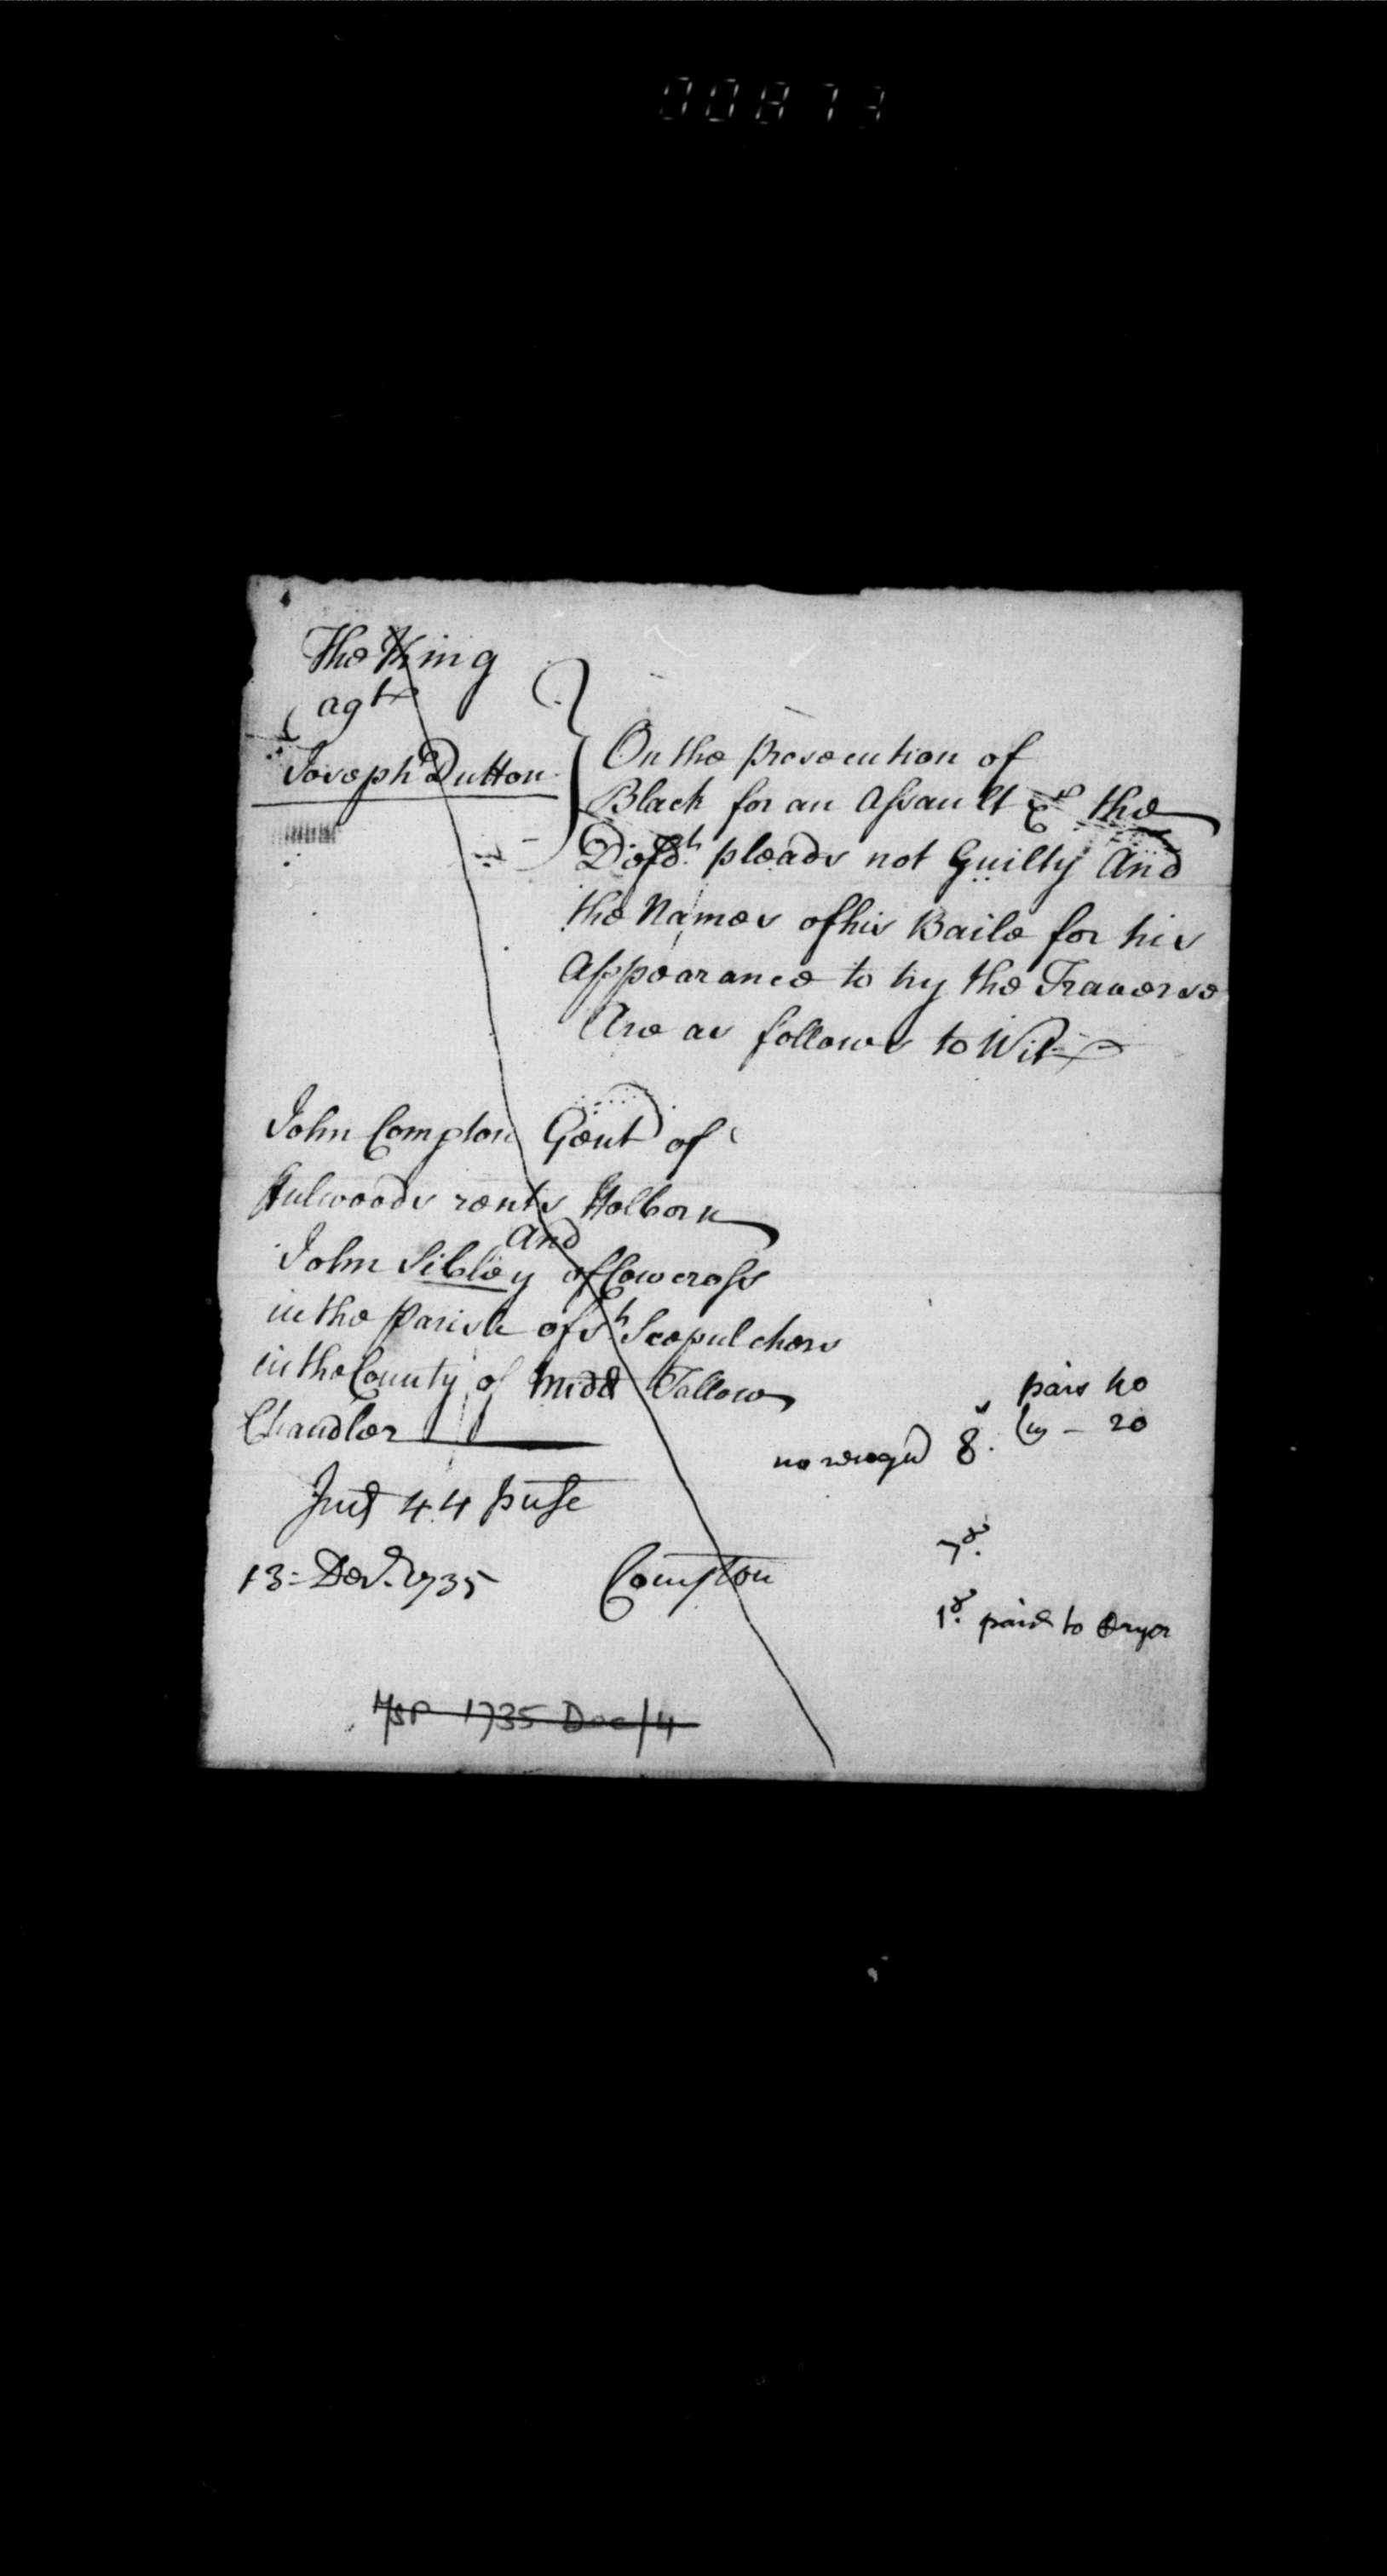 00873
The King
agt
Joseph Dutton
On the Prosecution of
Black for an Assault &c the
Defdt pleads not Guilty And
the Names of his Baile for his
Appearance to try the Traverse
Are as follows to Wit
John Compton Gent of
Fulwoods rents Holborn
And
John Sibley of Cowcross
in the Parish of St Seepulchers
in the County of Midd Tallow
Chandler
pais 40
20
no 8
Ind 44 pr se
13 = Dec. 1735
Compton
7s.
1s. paid to Cryer
MSP 1735 Dec/4